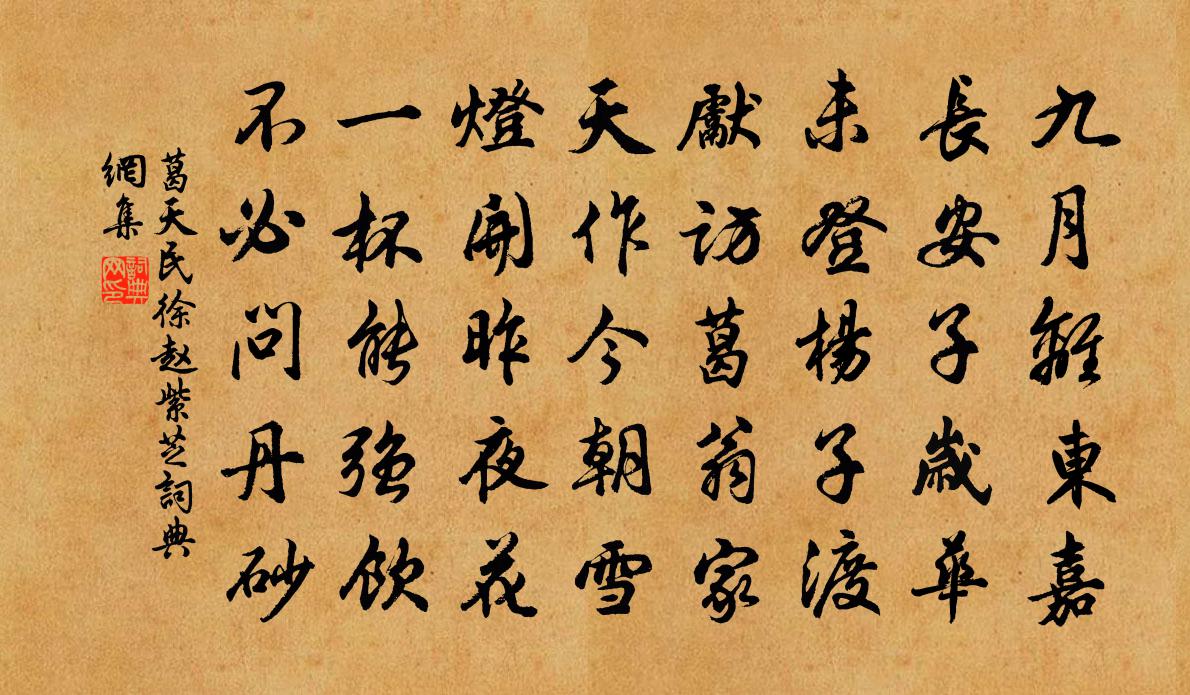 九月離東嘉
長安子歲華
未登楊子渡
獻訪葛翁家
天作今朝雪
燈開昨夜花
一杯能強飲
不必問丹砂
葛天民徐赵紫芝詞典
網集
詞典网印